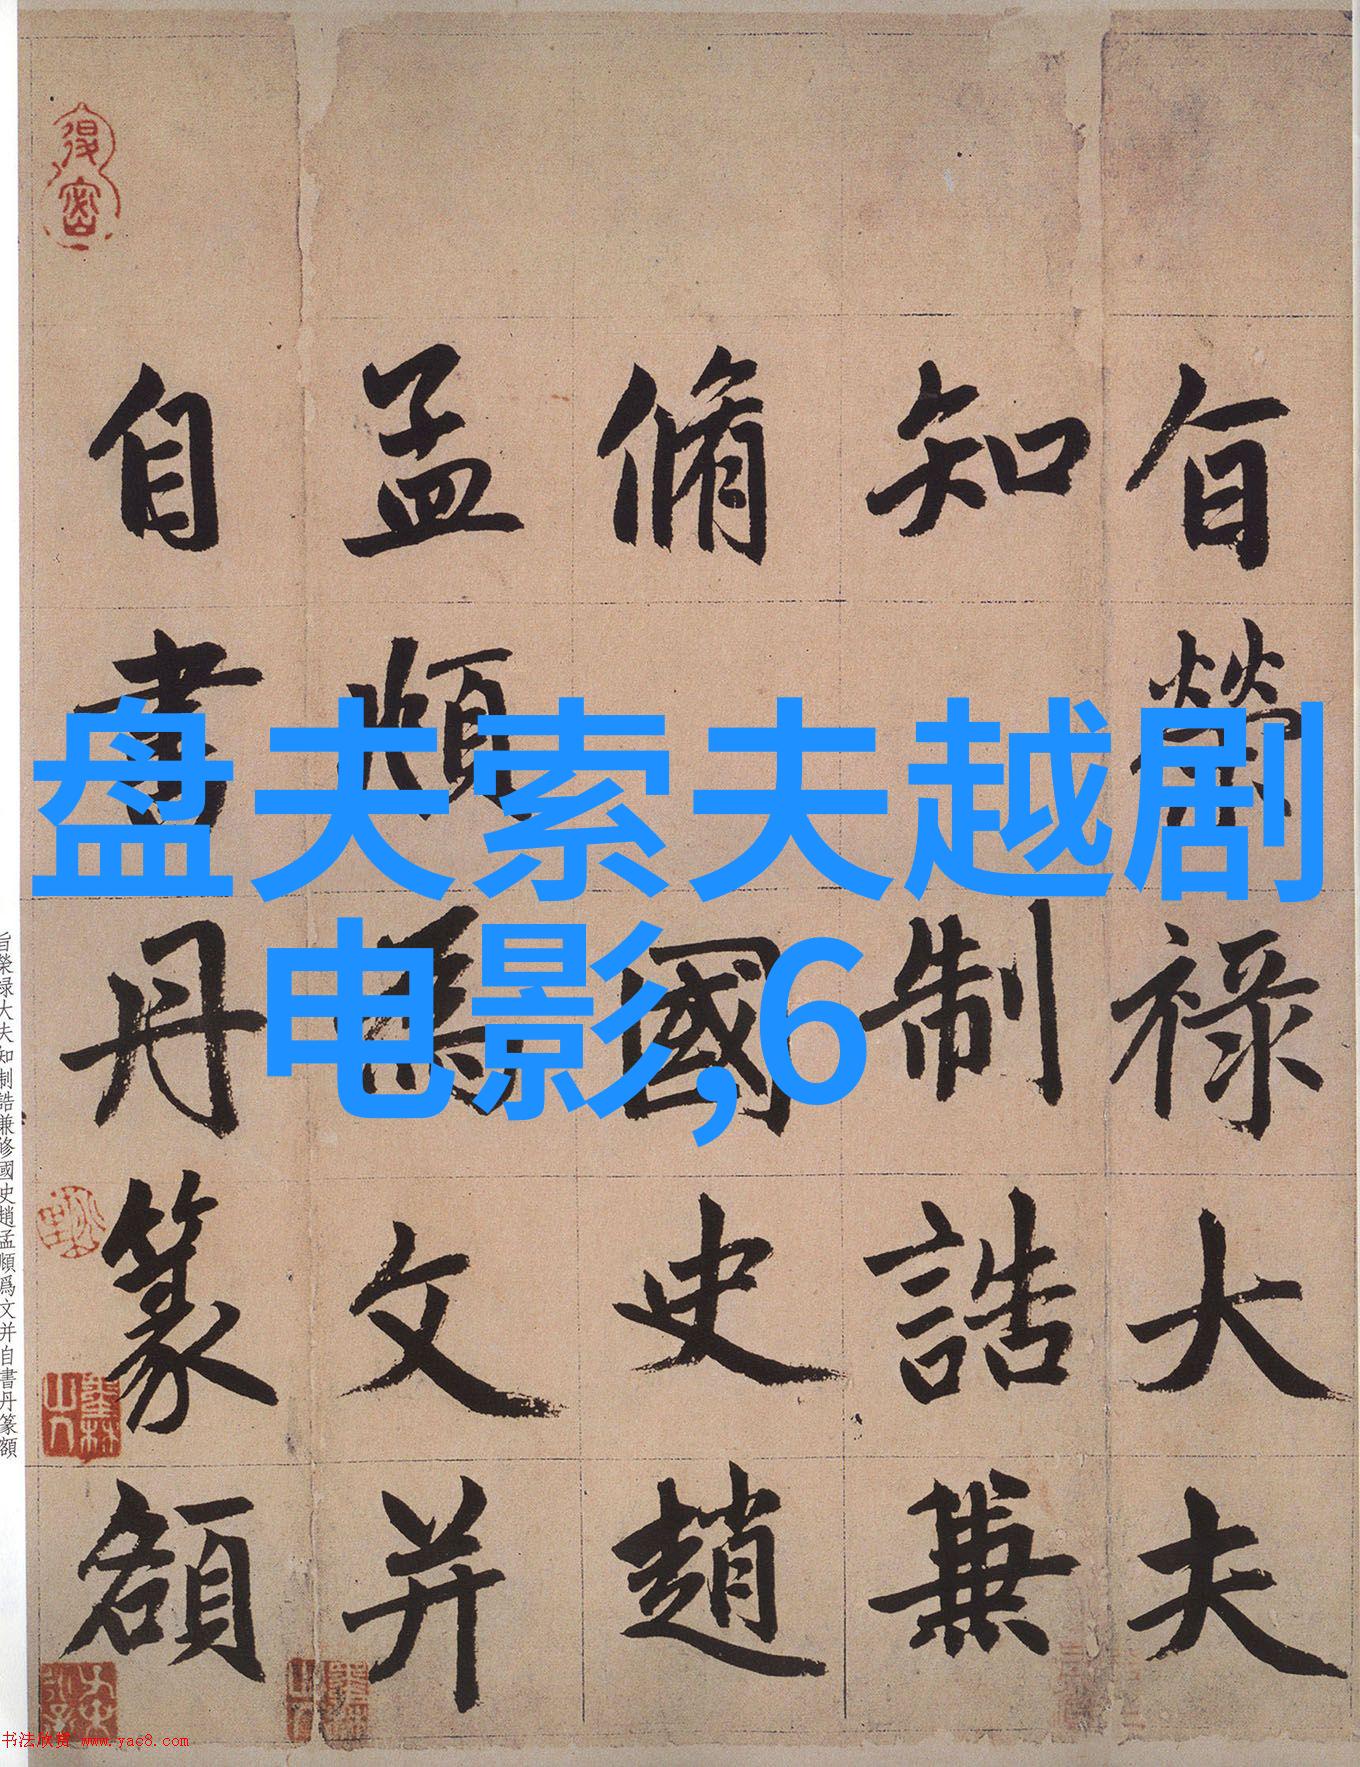 旨榮祿大夫
知制誥兼
脩國史趙
孟頫爲文并
自書丹篆額
盘夫索夫越剧
电影,6
旨榮禄大夫知制誥兼修國史趙孟頫爲文并自書丹篆額
书法欣赏 www.yac8.com